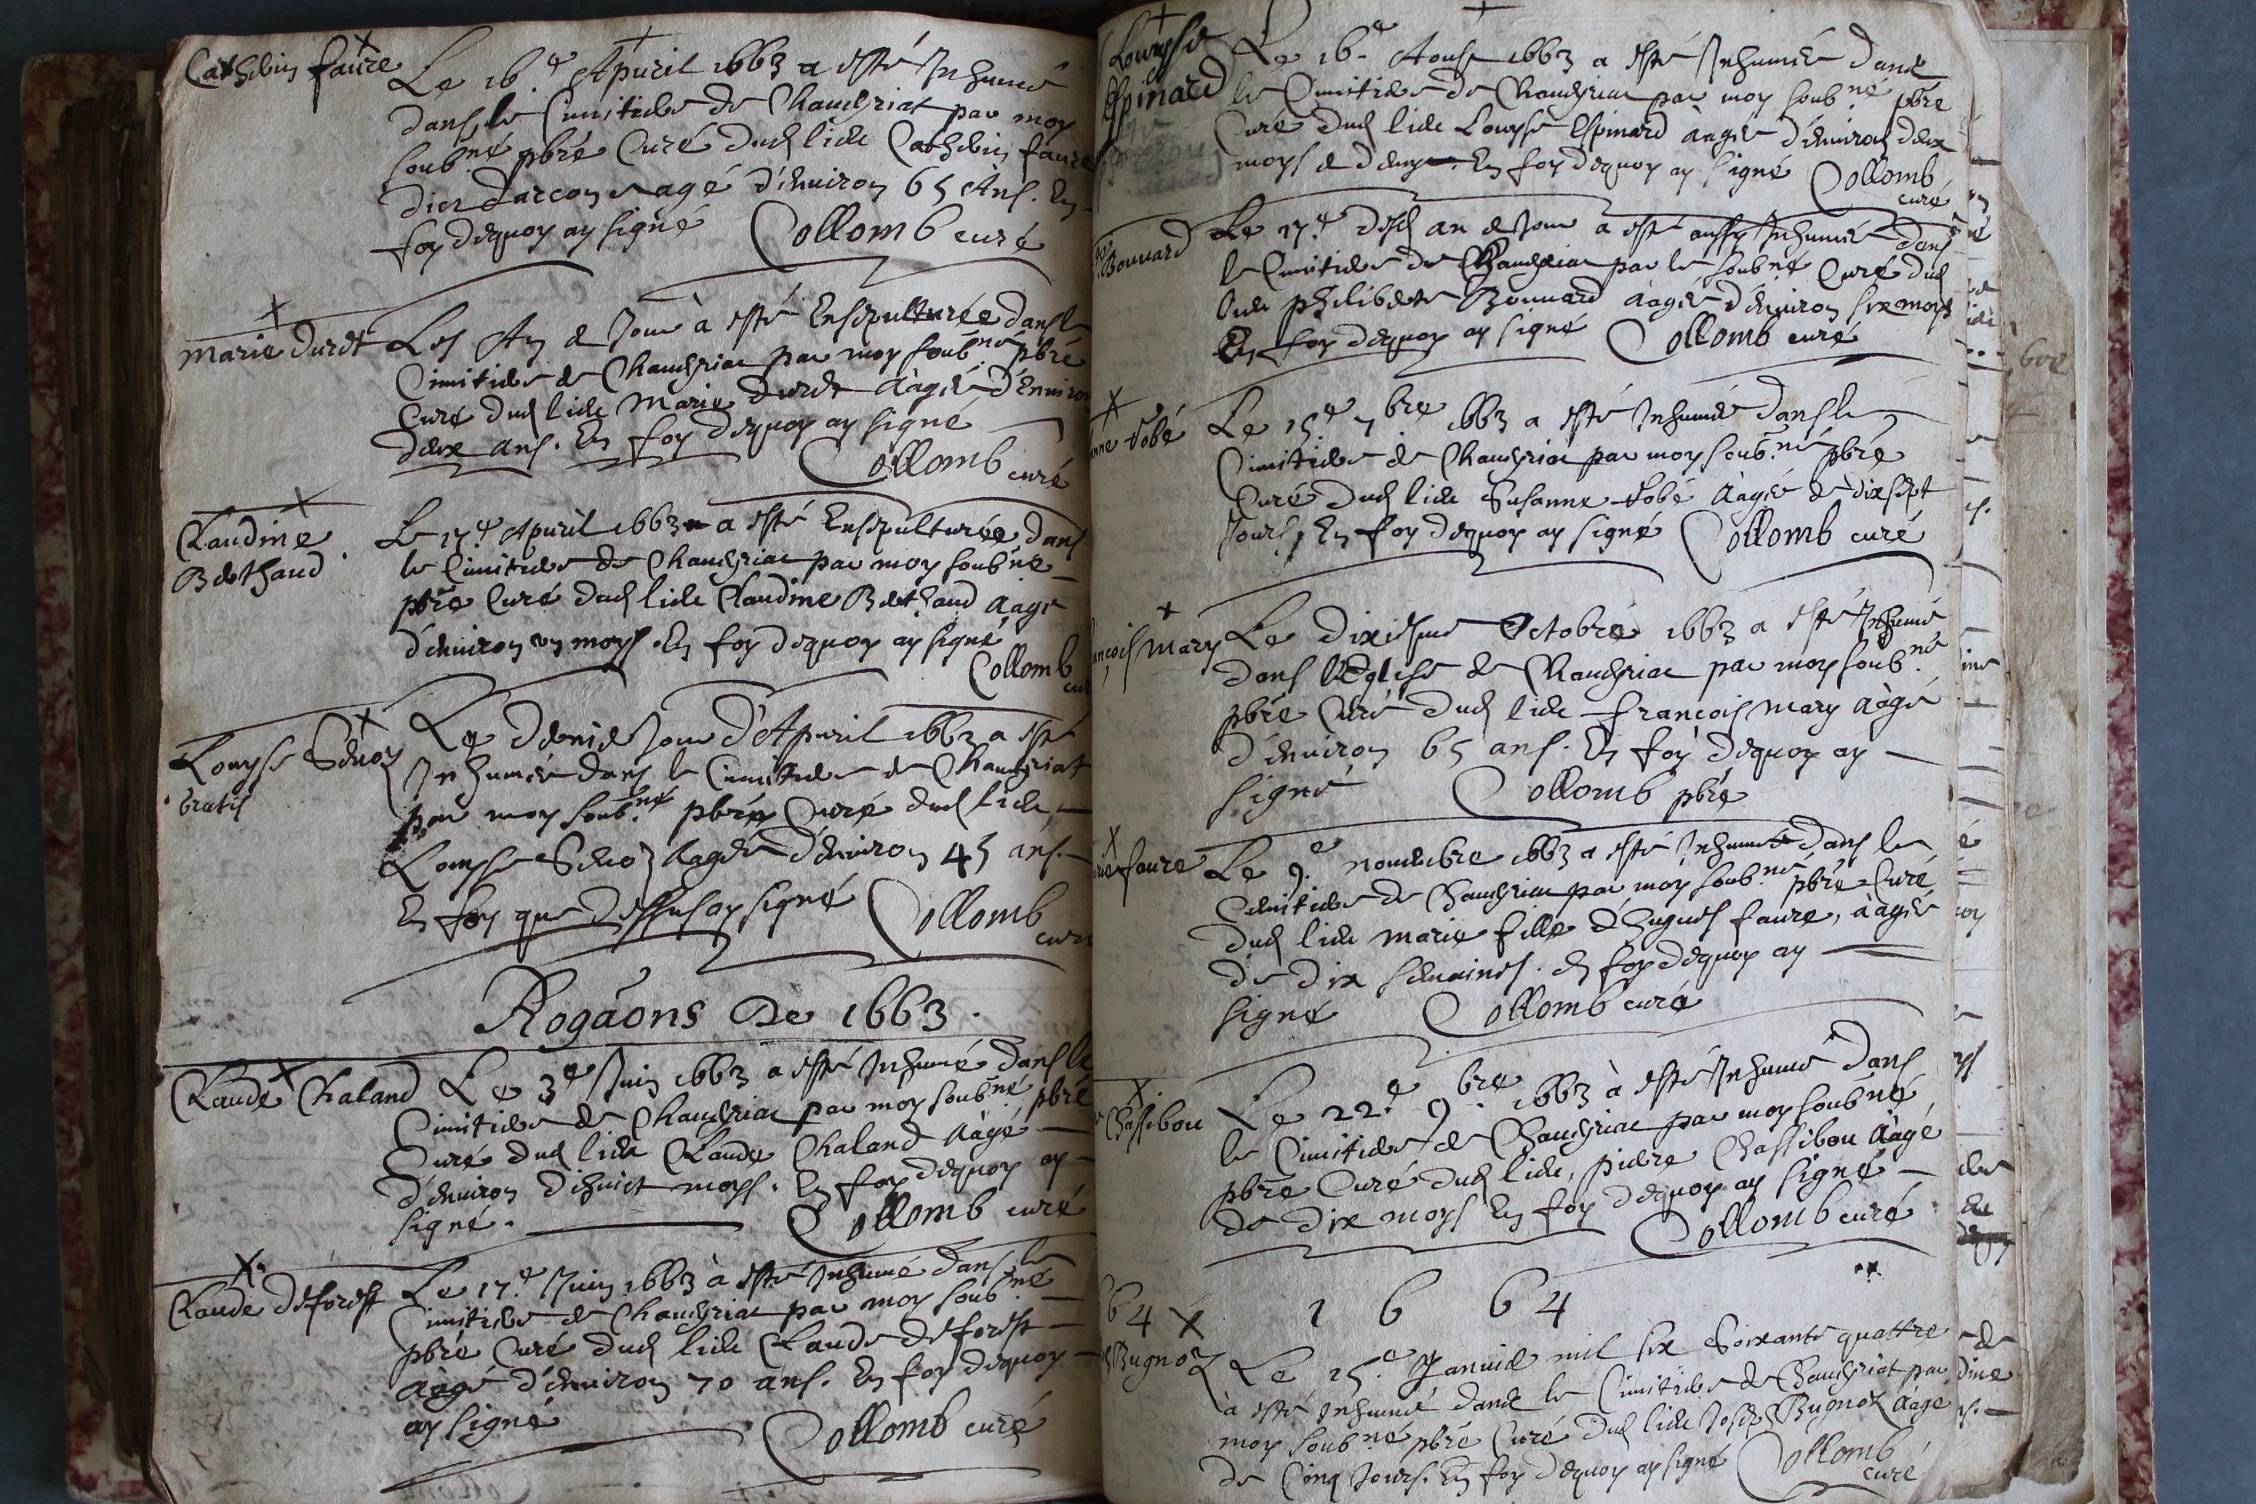 Cathelin faure
Le 16.e Apuril 1663 a esté Inhumé
dans le Cimitiere de Chandyriat par moy
soub.né pbre Curé dud lieu Cathelin faure
dict darcon agé d'enuiron 65 Ans. En
foy dequoy ay signé Collomb curé
marie duret
Les An & Jour à esté Ensepulturée dans le
Cimitiere de Chandyriat par moy soub.né pbre
Curé dud lieu Marie duret Aagée d'Enuiron
deux ans. En foy dequoy ay signé
Collomb curé
Claudine
Bethaud
Le 17.e Apuril 1663 a esté Ensepulturée dans
le Cimitiere de Chandyriat par moy soub.né
pbre Curé dud lieu Claudine Bethaud Aagé
d'enuiron un moys. En foy dequoy ay signé
Collomb
curé
Louyse
gratis
Le dernier Jour d'Apuril 1663 a esté
Inhumée dans le Cimitiere de Chandyriat
par moy soub.né pbre Curé dud lieu
Louyse Aagée d'enuiron 45 ans.
En foy que dessus ay signé Collomb
curé
Rogaôns De 1663.
Claude Chaland
Le 3.e Juin 1663 a esté Inhumé dans le
Cimitiere de Chandyriat par moy soub.né pbre
Curé dud lieu Claude Chaland Aagé
d'enuiron dixhuict moys. En foy dequoy ay
signé. Collomb curé
Claude deforest
Le 17.e Juin 1663 à esté Inhumé dans le
Cimitiere de Chandyriat par moy soub.né
pbre Curé dud lieu Claude deforest
Aagé d'enuiron 70 ans. En foy dequoy
ay signé Collomb curé
Louyse
Espinard
Le 16.e Aoust 1663 a esté Inhumée dans
le Cimitiere de Chandyriat par moy soub.né pbre
Curé dud lieu Louyse Espinard àagée d'enuiron deux
moys & demy. En foy dequoy ay signé Collomb
curé
Bouuard
Le 17.e desd an & Jour a esté aussy Inhumée dans
le Cimitiere de Chandyriat par le soub.né Curé dud
lieu philiberte Bouuard àagée d'enuiron six moys
En foy dequoy ay signé Collomb curé
anne Tobé
Le 15.e 7.bre 1663 a esté Inhumée dans le
Cimitiere de Chandyriat par moy soub.né pbre
Curé dud lieu Susanne Tobé Aagée de dixsept
Jours, En foy dequoy ay signé Collomb curé
ancois Mary
Le dixiesme Octobre 1663 a esté Inhumé
dans l'Eglise de Chandyriat par moy soub.né
pbre Curé dud lieu francois Mary Aàgé
d'enuiron 65 ans. En foy dequoy ay
signé Collomb pbre
faure
Le 9.e nouembre 1663 a esté Inhumée dans le
Cemitiere de Chandyriat par moy soub.né pbre Curé
dud lieu marie fille d'hugues faure, àagée
de dix semaines. En foy dequoy ay
signé Collomb curé
Chassibou
Le 22.e 9.bre 1663 à esté Inhumé dans
le Cimitiere de Chandyriat par moy soub.né
pbre Curé dud lieu, pierre Chassibou Aàgé
de dix moys En foy dequoy ay signé
Collomb curé
64
1664
Bugnoz
Le 15.e Januier mil six Soixante quattre
à esté Inhumé dans le Cimitiere de Chandyriat par
moy soub.né pbre Curé dud lieu Joseph Bugnoz Aàgé
de Cinq Jours. En foy dequoy ay signé Collomb
curé